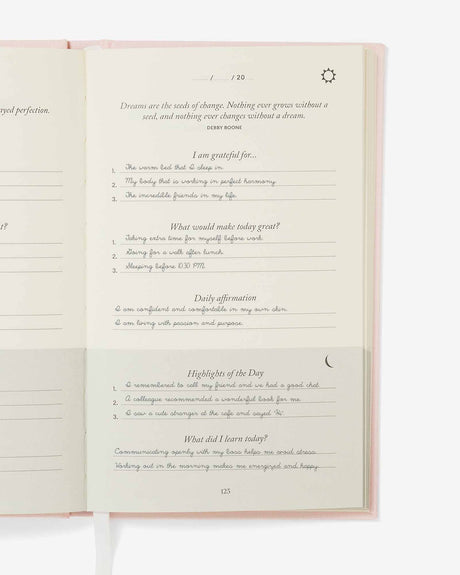 ayed perfection.
t?
/ / 20
Dreams are the seeds of change. Nothing ever grows without a
seed, and nothing ever changes without a dream.
DEBBY BOONE
I am grateful for...
1. The warm bed that I sleep in.
2. My body that is working in perfect harmony.
3. The incredible friends in my life.
What would make today great?
1. Taking extra time for myself before work.
2. Going for a walk after lunch.
3. Sleeping before 10:30 PM.
Daily affirmation
I am confident and comfortable in my own skin.
I am living with passion and purpose.
Highlights of the Day
1. I remembered to call my friend and we had a good chat.
2. A colleague recommended a wonderful book for me.
3. I saw a cute stranger at the cafe and sayed 'Hi'.
What did I learn today?
Communicating openly with my boss helps me avoid stress.
Working out in the morning makes me energized and happy.
123